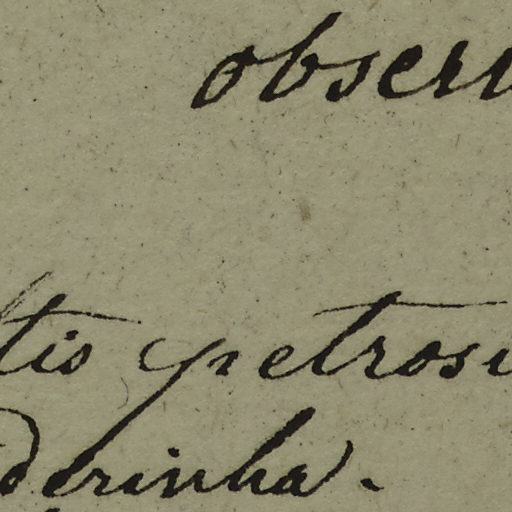 obser
tis petrosi
derinha.